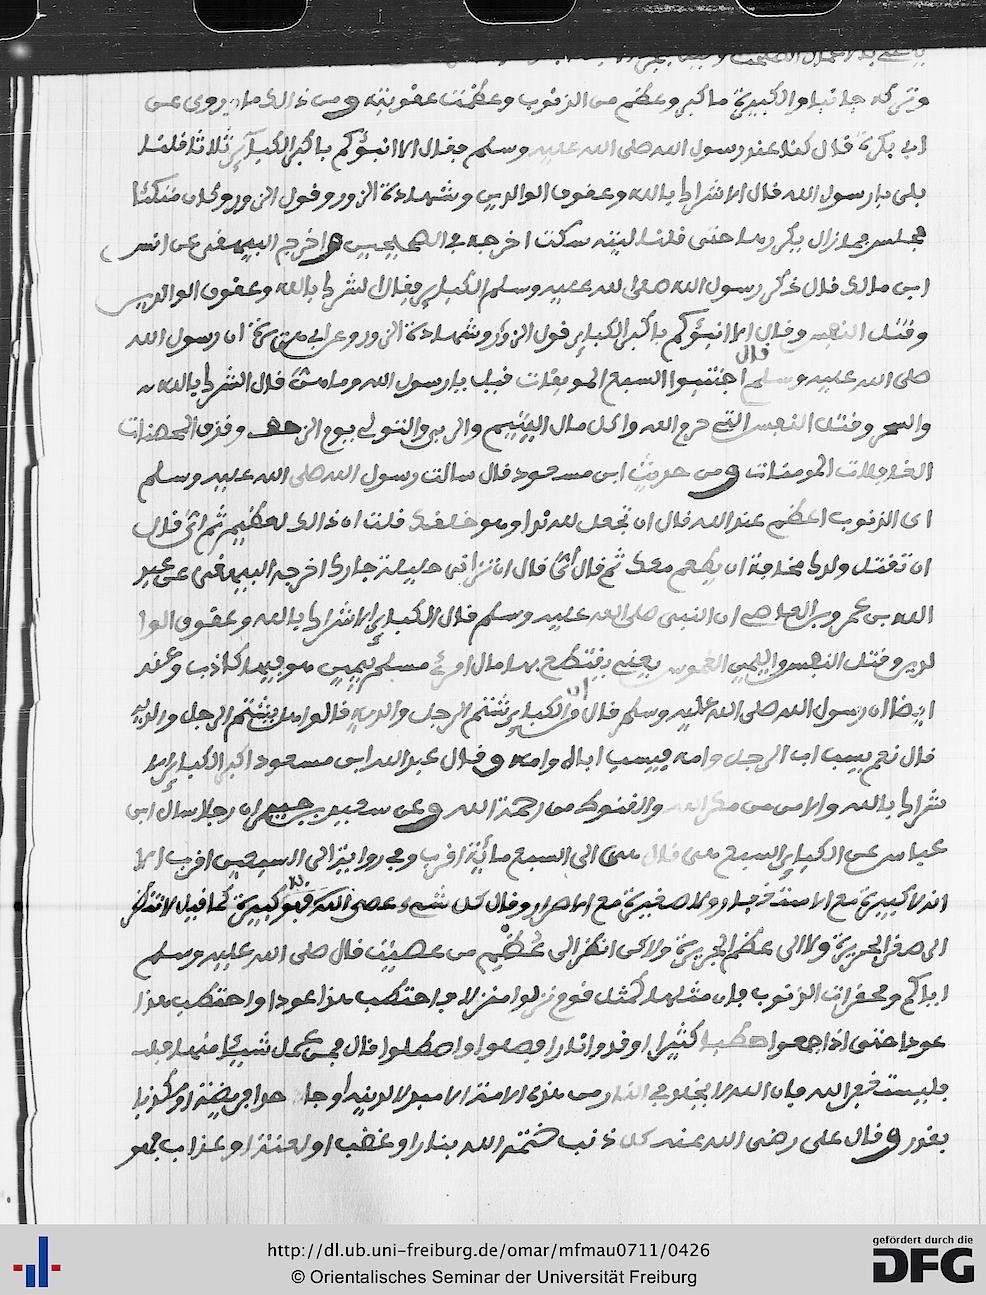 وترك جانبا والكبيرة ما كبر وعظم من الذنوب وعظمت عقوبته ومن ذالك ما يروى عن
ابي بكرة قال كنا عند رسول الله صلى الله عليه وسلم فقال الا انبؤكم باكبر الكباير ثلاثا قلنا
بلى يا رسول الله قال الاشراك بالله وعقوق الوالدين وشهادة الزور وقول الزور وكان متكئا
فجلس فما زال يكررها حتى قلنا ليته سكت اخرجه في الصحيحين واخرج البيهقي عن انس
ابن مالك قال ذكر رسول الله صلى الله عليه وسلم الكباير فقال الشرك بالله وعقوق الوالدين
وقتل النفس وقال الا انبؤكم باكبر الكباير قول الزور وشهادة الزور وعن ابي هريرة ان رسول الله
صلى الله عليه وسلم قال اجتنبوا السبع الموبقات قيل يا رسول الله وما هن قال الشرك بالله
والسحر وقتل النفس التي حرم الله واكل مال اليتيم والربى والتولي يوم الزحف وقذف المحصنات
الغافلات المومنات ومن حديث ابن مسعود قال سالت رسول الله صلى الله عليه وسلم
اي الذنوب اعظم عند الله قال ان تجعل لله ندا وهو خلقك قلت ان ذالك لعظيم ثم اي قال
ان تقتل ولدك مخافة ان يطعم معك ثم قال اي قال ان تزاني حليلة جارك اخرجه البيهقي عن عبد
الله بن عمرو بن العاصي ان النبي صلى الله عليه وسلم قال الكباير الاشراك بالله وعقوق الوا
لدين وقتل النفس واليمين الغموس يعني يقتطع بها مال امرئ مسلم بيمين هو فيها كاذب وعنه
ايضا ان رسول الله صلى الله عليه وسلم قال ان من الكباير شتم الرجل والديه قالوا وهل يشتم الرجل والديه
قال نعم يسب اب الرجل وامه فيسب اباه وامه وقال عبد الله ابن مسعود اكبر الكباير الا
شراك بالله والامن من مكر الله والقنوط من رحمة الله وعن سعيد بن جبير ان رجلا سال ابن
عباس عن الكباير السبع هي قال هي الى السبع مائة اقرب وفي رواية الى السبعين اقرب الا
انه لا كبيرة مع الاستغفار ولا صغيرة مع الاصرار وقال كل شيء عصي الله به فهو كبيرة كما قيل لا تنظر
الى صغر الجريرة ولا الى عظم الجريرة ولاكن انظر الى عظيم من عصيت قال صلى الله عليه وسلم
اياكم ومحقرات الذنوب فان مثلها كمثل قوم نزلوا منزلا فاحتطب هذا عودا واحتطب هذا
عودا حتى اذا جمعوا حطبا كثيرا اوقدوا نارا فصلوا واصطلوا قال فمن عمل شيئا منها
فليستغفر الله فان الله لا يخلد في النار من هذه الامة الا مبدلا لدينه او جاحدا فريضة او مكذبا
بقدر وقال على رضي الله عنه كل ذنب ختمه الله بنار او غضب او لعنة او عذاب فهو
http://dl.ub.uni-freiburg.de/omar/mfmau0711/0426
© Orientalisches Seminar der Universität Freiburg
gefördert durch die
DFG